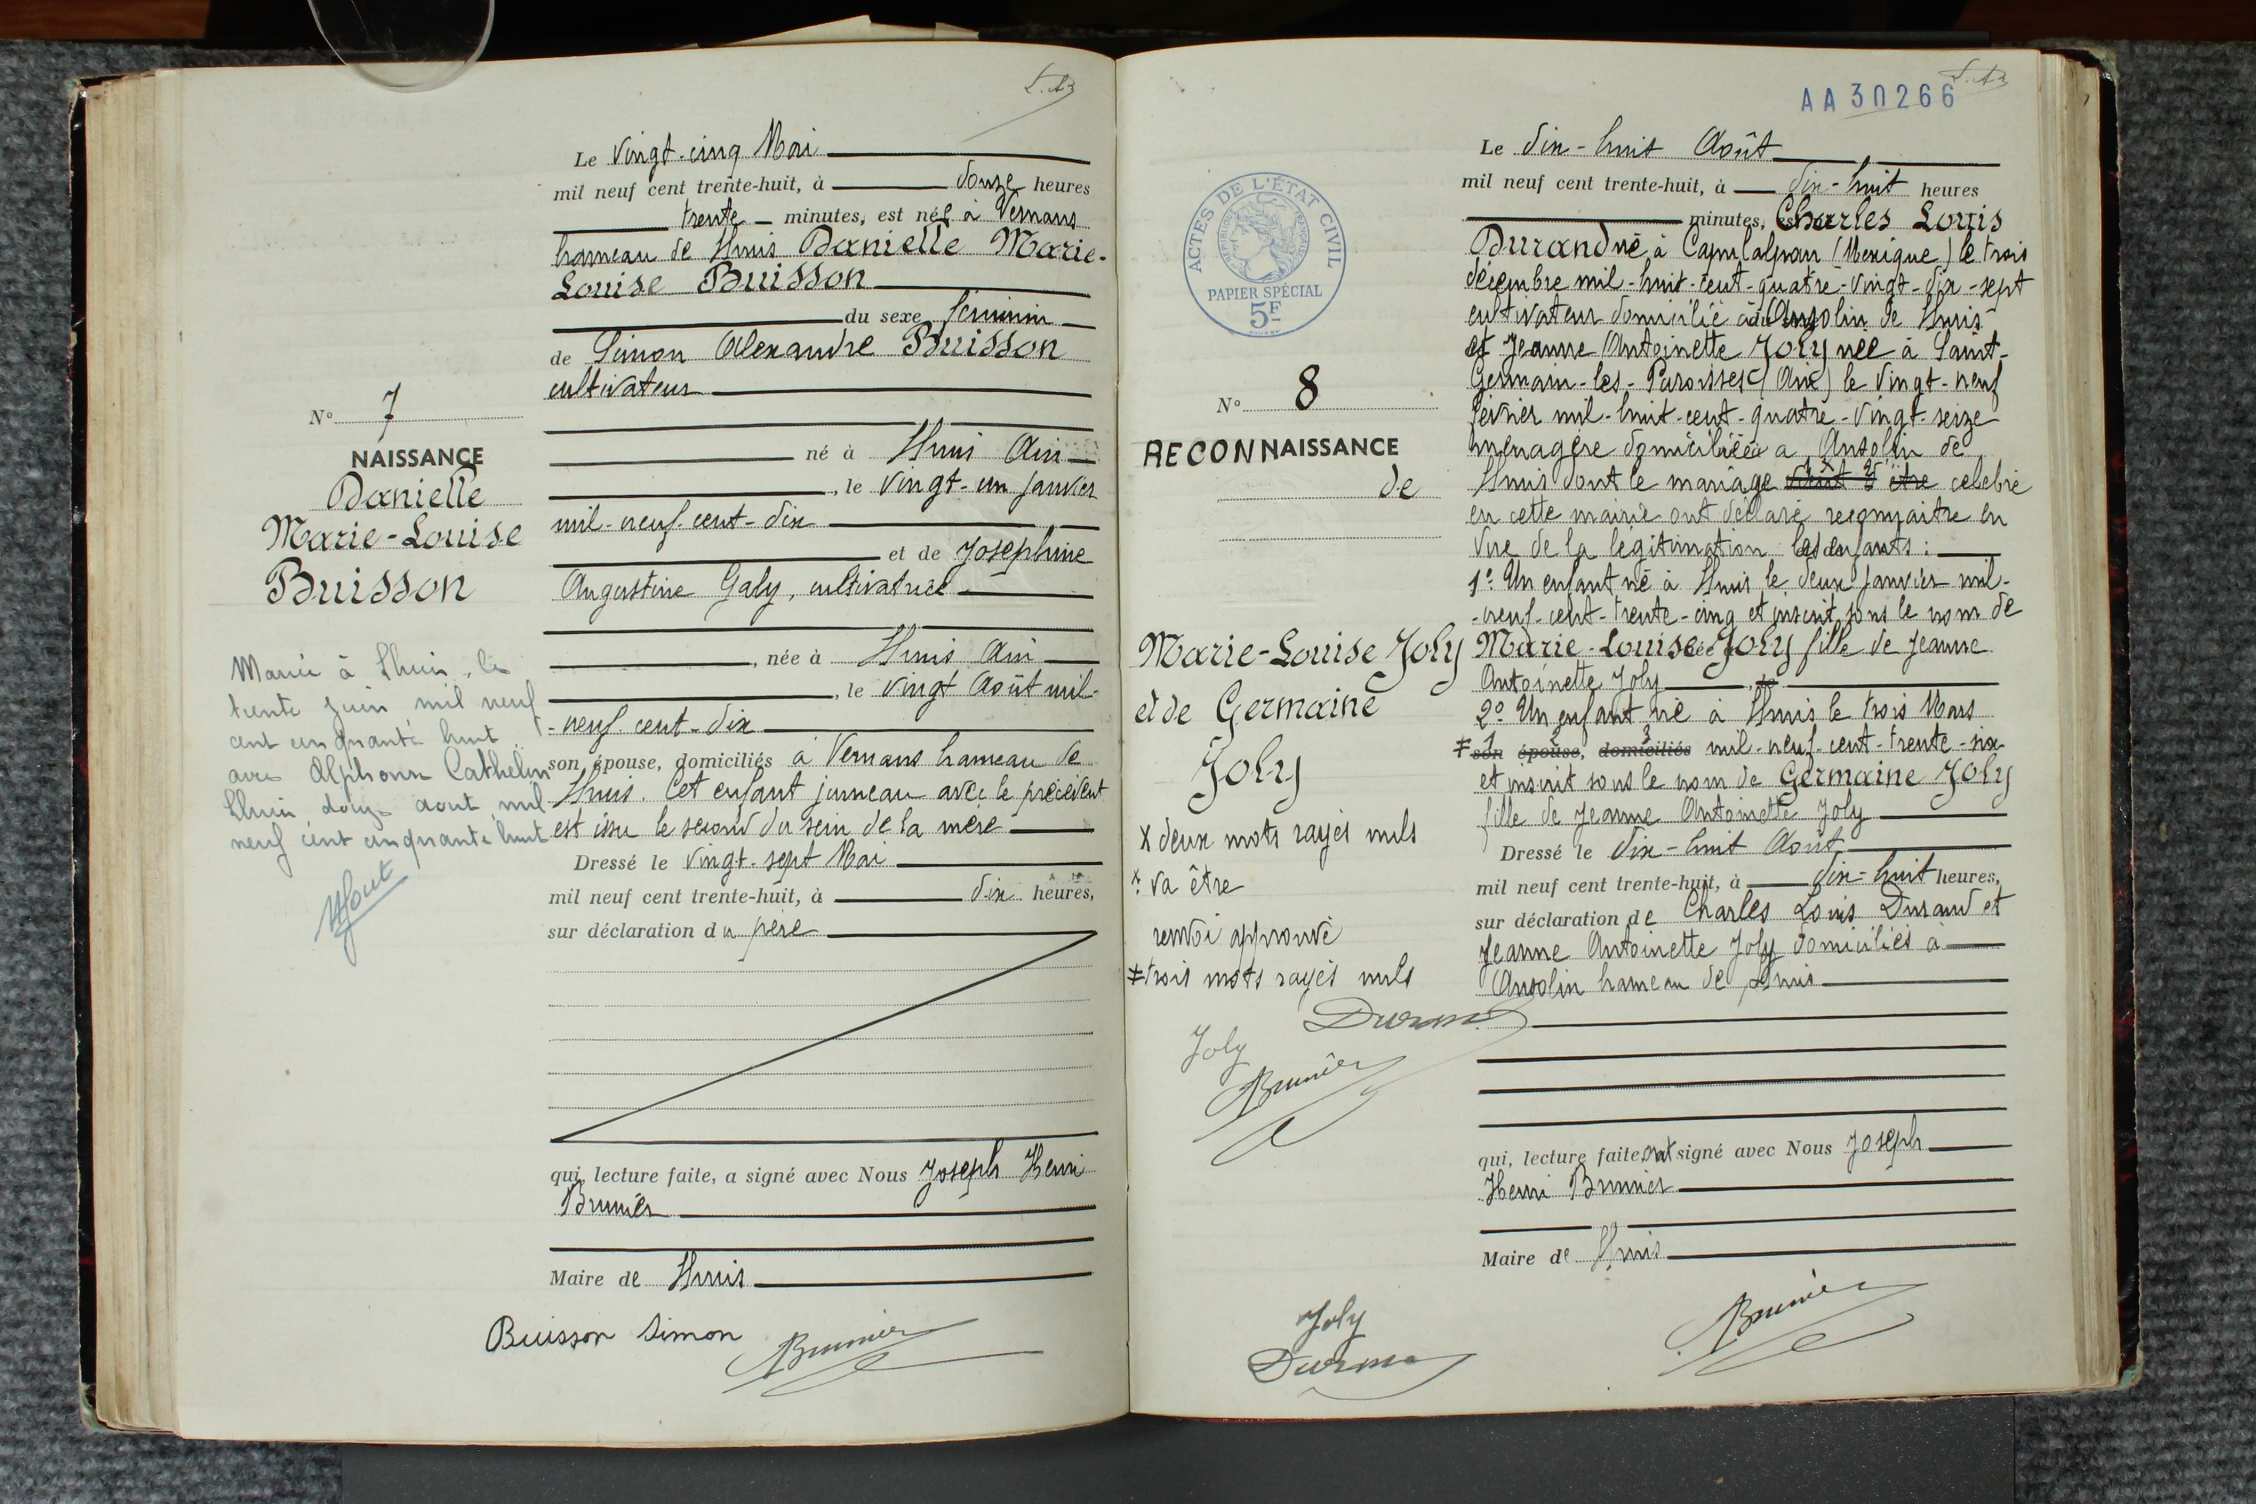 L. AB
Le vingt-cinq Mai
mil neuf cent trente-huit, à douze heures
trente minutes, est née à Vernans
hameau de Lhuis Danielle Marie-
Louise Buisson
du sexe féminin
de Simon Alexandre Buisson
cultivateur
né à Lhuis Ain
, le vingt-un janvier
mil-neuf-cent-dix
et de Joséphine
Augustine Galy, cultivatrice
, née à Lhuis Ain
, le vingt Août mil-
-neuf-cent-dix
son épouse, domiciliés à Vernans hameau de
Lhuis. Cet enfant jumeau avec le précédent
est issu le second du sein de la mère
Dressé le vingt-sept Mai
mil neuf cent trente-huit, à dix heures,
sur déclaration du père
qui, lecture faite, a signé avec Nous Joseph Henri
Brunier
Maire de Lhuis
Buisson Simon Brunier
N° 7
NAISSANCE
Danielle
Marie-Louise
Buisson
Mariée à Lhuis, le
trente juin mil neuf
cent cinquante huit
avec Alphonse Cathelin
Lhuis, douze août mil
neuf cent cinquante huit
AA 30266
L. AB
ACTES DE L'ÉTAT CIVIL
PAPIER SPÉCIAL
5F
N° 8
RECONNAISSANCE
de
Marie-Louise Joly
et de Germaine
Joly
X deux mots rayés nuls
x va être
renvoi approuvé
≠ trois mots rayés nuls
Joly Durand
Brunier
Le dix-huit Août
mil neuf cent trente-huit, à dix-huit heures
minutes, Charles Louis
Durand né à (Mexique) le trois
décembre mil-huit-cent-quatre-vingt-dix-sept
cultivateur domicilié à Ansolin de Lhuis
et Jeanne Antoinette Joly née à Saint-
Germain-les-Paroisses (Ain) le vingt-neuf
février mil-huit-cent-quatre-vingt-seize
ménagère domiciliée a Ansolin de
Lhuis dont le mariage être célébré
en cette mairie ont déclaré reconnaître en
vue de la légitimation les enfants :
1° Un enfant né à Lhuis le deux janvier mil-
-neuf-cent-trente-cinq et inscrit sous le nom de
Marie-Louise Joly fille de Jeanne
Antoinette Joly
2° Un enfant né à Lhuis le trois Mars
≠ 1 2 3
son épouse, domiciliés mil-neuf-cent-trente-six
et inscrit sous le nom de Germaine Joly
fille de Jeanne Antoinette Joly
Dressé le dix-huit Août
mil neuf cent trente-huit, à dix-huit heures,
sur déclaration de Charles Louis Durand et
Jeanne Antoinette Joly domiciliés à
Ansolin hameau de Lhuis
qui, lecture faite, ont signé avec Nous Joseph
Henri Brunier
Maire de Lhuis
Joly
Durand
Brunier